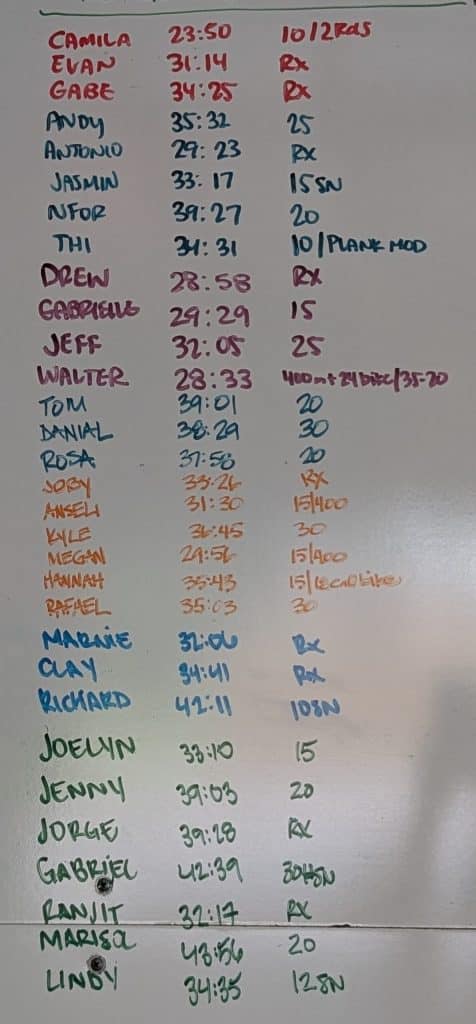 CAMILA 23:50 10/2Rds
EVAN 31:14 Rx
GABE 34:25 Rx
ANDY 35:32 25
ANTONIO 29:23 Rx
JASMIN 33:17 15SN
NFOR 39:27 20
THI 34:31 10/PLANK MOD
DREW 28:58 Rx
GABRIELLE 29:29 15
JEFF 32:05 25
WALTER 28:33
TOM 39:01 20
DANIAL 38:29 30
ROSA 37:58 20
JOBY 33:26 Rx
ANSELI 31:30 15/400
KYLE 36:45 30
MEGAN 29:56 15/400
HANNAH 35:43 15/
RAFAEL 35:03 30
MARNIE 32:06 Rx
CLAY 34:41 Rx
RICHARD 42:11 10SN
JOELYN 33:10 15
JENNY 39:03 20
JORGE 39:28 Rx
GABRIEL 42:39
RANJIT 32:17 Rx
MARISOL 43:56 20
LINDY 34:35 12SN